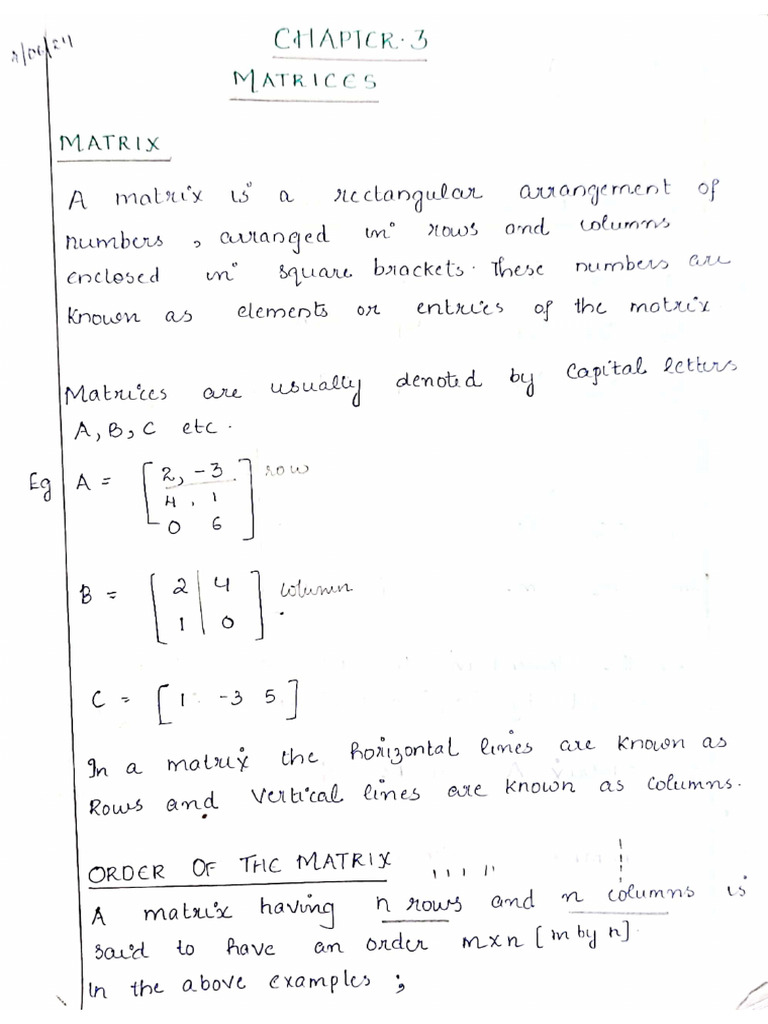 CHAPTER-3
MATRICES
MATRIX
A matrix is a rectangular arrangement of
numbers, arranged in rows and columns
enclosed in square brackets. These numbers are
known as elements or entries of the matrix
Matrices are usually denoted by Capital letters
A, B, C etc.
Eg A = [ 2, -3 row
4, 1
0 6 ]
B = [ 2 | 4 column
1 | 0 ] .
C = [ 1 -3 5 ]
In a matrix the horizontal lines are known as
Rows and Vertical lines are known as columns.
ORDER OF THE MATRIX
A matrix having n rows and n columns is
said to have an order m×n [m by n]
In the above examples ;